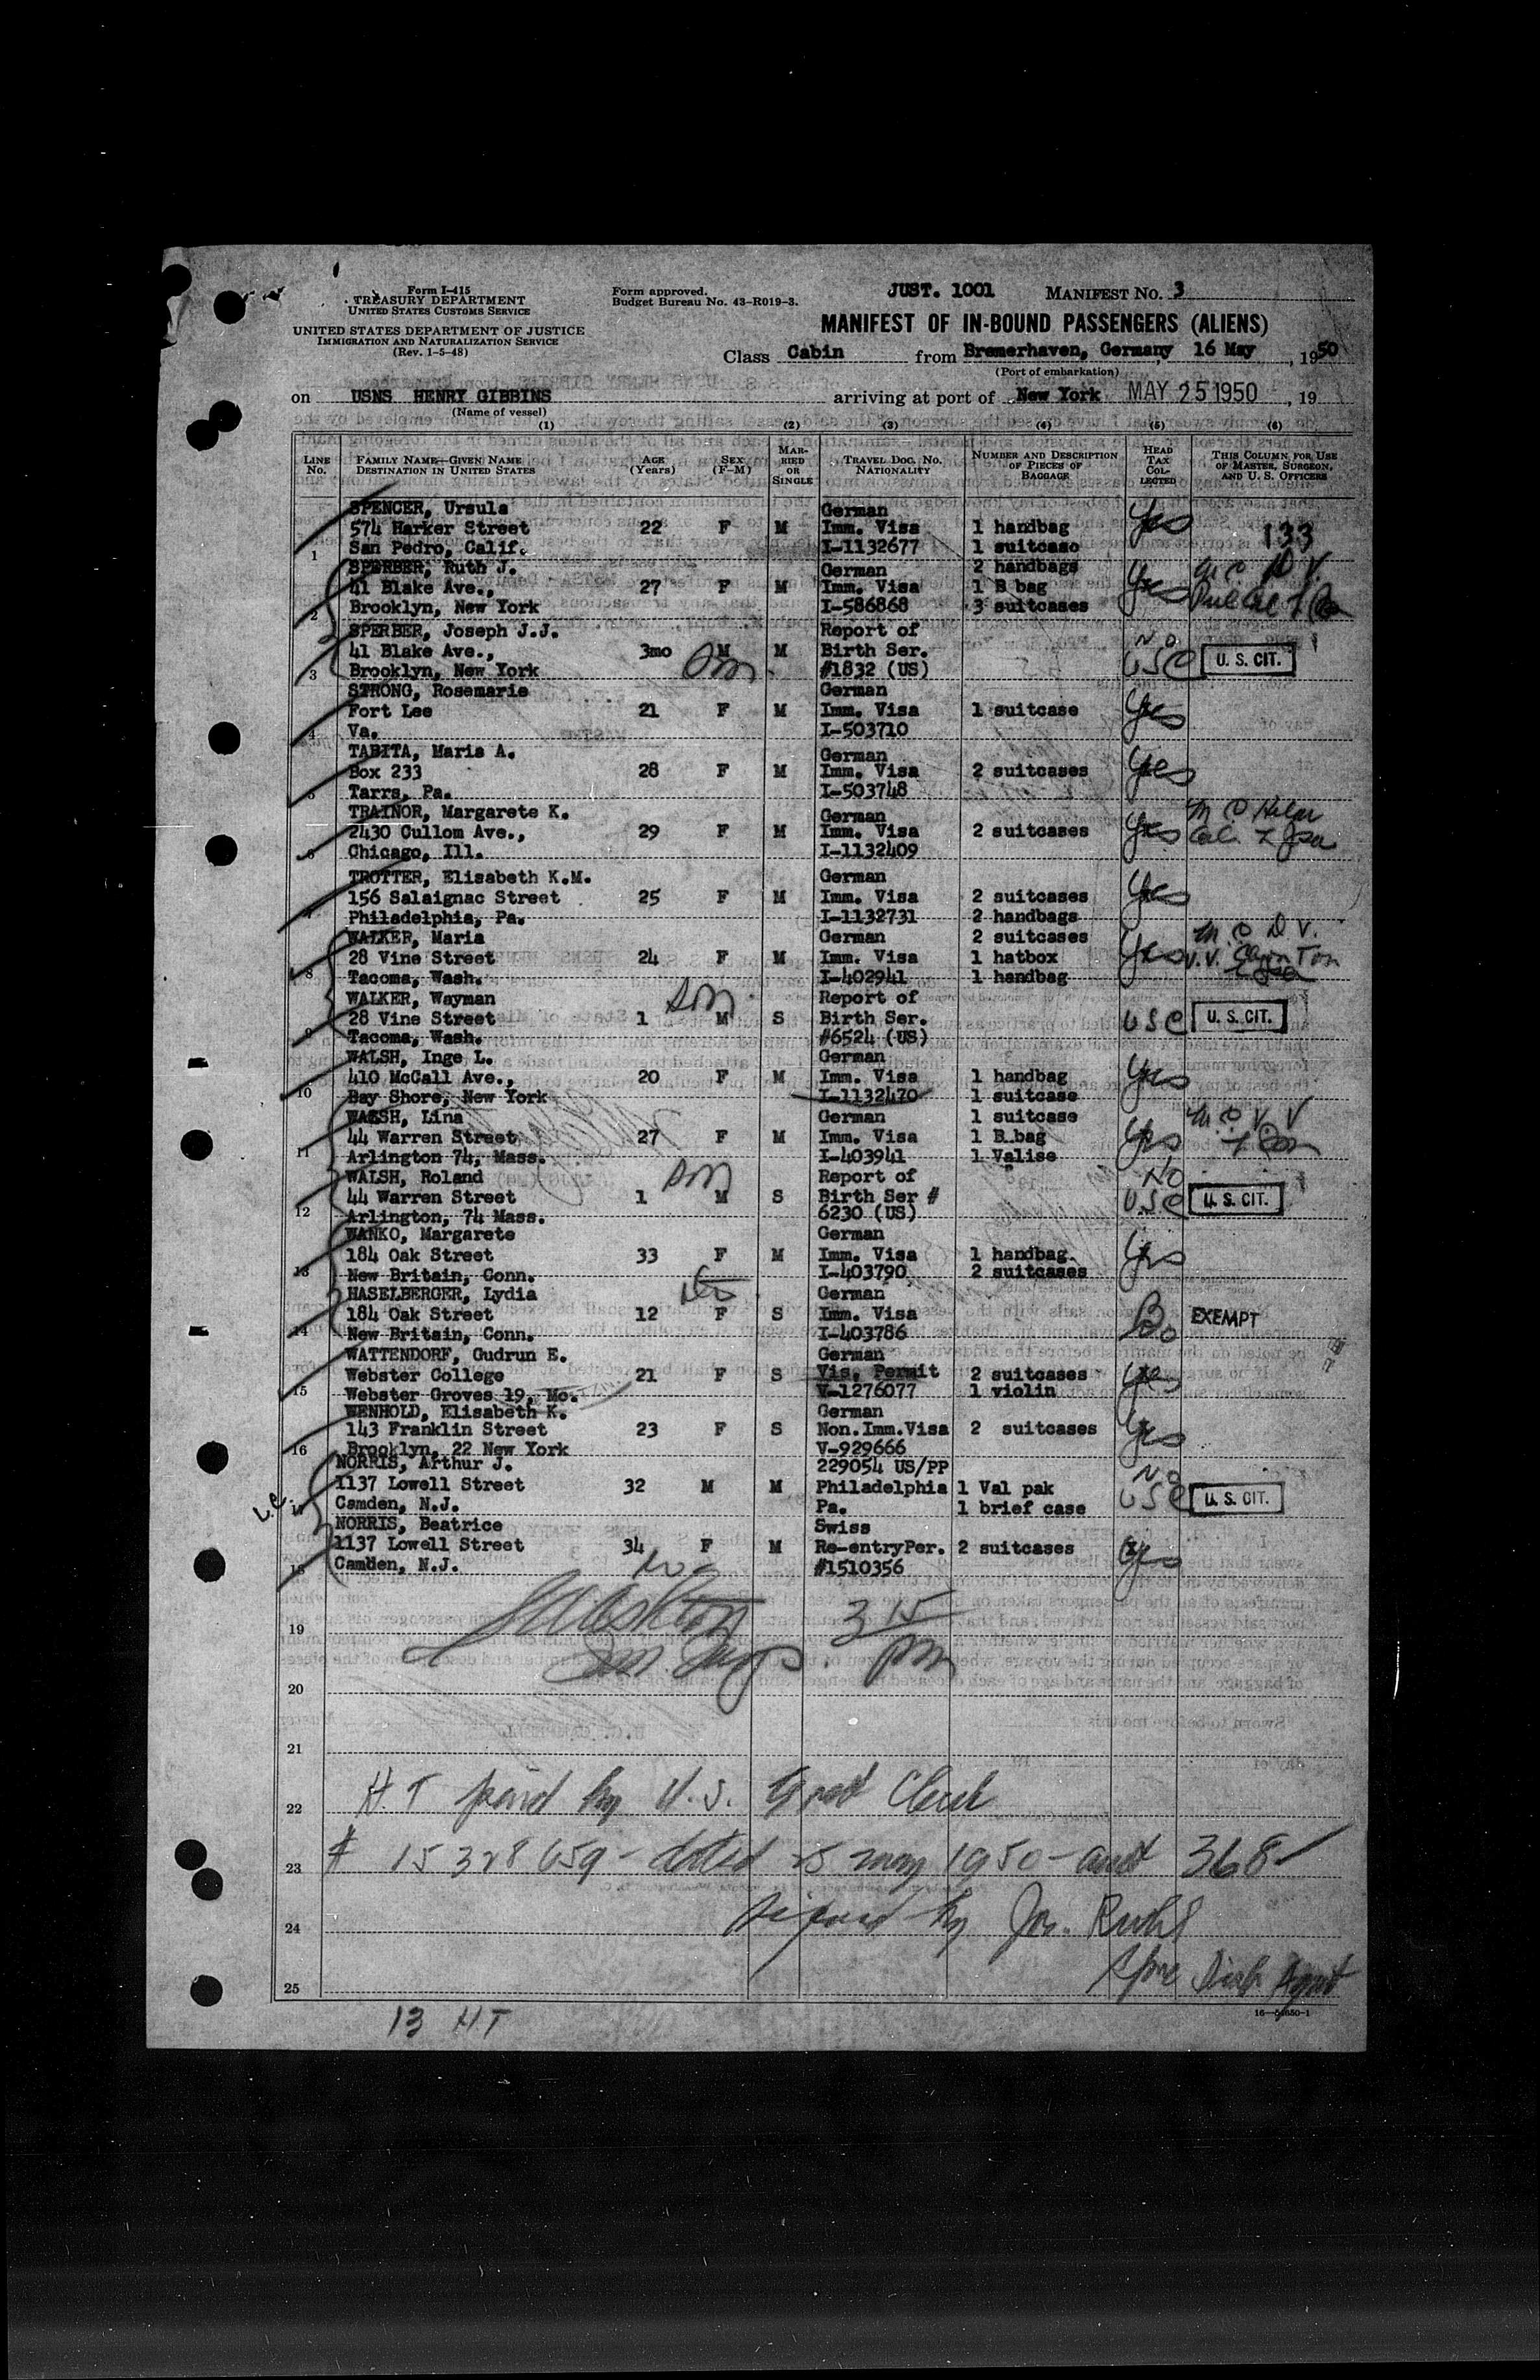 Form I-415
TREASURY DEPARTMENT
UNITED STATES CUSTOMS SERVICE
UNITED STATES DEPARTMENT OF JUSTICE
IMMIGRATION AND NATURALIZATION SERVICE
(Rev. 1-5-48)
Form approved.
Budget Bureau No. 43-R019-3.
JUST. 1001 MANIFEST NO. 3
MANIFEST OF IN-BOUND PASSENGERS (ALIENS)
Class Cabin from Bremerhaven, Germany, 16 May, 1950
(Port of embarkation)
on USNS HENRY GIBBINS arriving at port of New York MAY 25 1950, 19
(Name of vessel)
(1) (2) (3) (4) (5) (6)
LINE NO. FAMILY NAME—GIVEN NAME DESTINATION IN UNITED STATES AGE (YEARS) SEX (F-M) MARRIED OR SINGLE TRAVEL DOC. NO. NATIONALITY NUMBER AND DESCRIPTION OF PIECES OF BAGGAGE HEAD TAX COLLECTED THIS COLUMN FOR USE OF MASTER, SURGEON, AND U. S. OFFICERS
SPENCER, Ursula German
574 Harker Street 22 F M Imm. Visa 1 handbag Yes
1 San Pedro, Calif. I-1132677 1 suitcase 133
SPERBER, Ruth J. German 2 handbags
41 Blake Ave., 27 F M Imm. Visa 1 B bag Yes
2 Brooklyn, New York I-586868 3 suitcases
SPERBER, Joseph J.J. Report of No
41 Blake Ave., 3mo M M Birth Ser. USC U. S. CIT.
3 Brooklyn, New York Son #1832 (US)
STRONG, Rosemarie German
Fort Lee 21 F M Imm. Visa 1 suitcase Yes
4 Va. I-503710
TABITA, Maria A. German
Box 233 28 F M Imm. Visa 2 suitcases Yes
5 Tarrs, Pa. I-503748
TRAINOR, Margarete K. German
2430 Cullom Ave., 29 F M Imm. Visa 2 suitcases Yes
6 Chicago, Ill. I-1132409
TROTTER, Elisabeth K.M. German
156 Salaignac Street 25 F M Imm. Visa 2 suitcases Yes
7 Philadelphia, Pa. I-1132731 2 handbags
WALKER, Maria German 2 suitcases
28 Vine Street 24 F M Imm. Visa 1 hatbox Yes
8 Tacoma, Wash. I-402941 1 handbag
WALKER, Wayman Son Report of
28 Vine Street 1 M S Birth Ser. USC U. S. CIT.
9 Tacoma, Wash. #6524 (US)
WALSH, Inge L. German
410 McCall Ave., 20 F M Imm. Visa 1 handbag Yes
10 Bay Shore, New York I-1132470 1 suitcase
WALSH, Lina German 1 suitcase
44 Warren Street 27 F M Imm. Visa 1 B bag Yes
11 Arlington 74, Mass. I-403941 1 Valise
WALSH, Roland Son Report of No
44 Warren Street 1 M S Birth Ser # USC U. S. CIT.
12 Arlington, 74 Mass. 6230 (US)
WANKO, Margarete German
184 Oak Street 33 F M Imm. Visa 1 handbag Yes
13 New Britain, Conn. I-403790 2 suitcases
HASELBERGER, Lydia German
184 Oak Street 12 F S Imm. Visa EXEMPT
14 New Britain, Conn. I-403786
WATTENDORF, Gudrun E. German
Webster College 21 F S Vis. Permit 2 suitcases Yes
15 Webster Groves 19, Mo. V-1276077 1 violin
WENHOLD, Elisabeth K. German
143 Franklin Street 23 F S Non.Imm.Visa 2 suitcases Yes
16 Brooklyn, 22 New York V-929666
NORRIS, Arthur J. 229054 US/PP No
1137 Lowell Street 32 M M Philadelphia 1 Val pak USC U. S. CIT.
17 Camden, N.J. Pa. 1 brief case
NORRIS, Beatrice Swiss
1137 Lowell Street 34 F M Re-entryPer. 2 suitcases Yes
18 Camden, N.J. #1510356
19 3 15
Imm. Insp. PM
20
21
22 H.T paid by U.S. Govt Check
23 # 15328659 - dated 25 may 1950 - amt 368
24 signed by Jos. Ruhl
25
13 HT